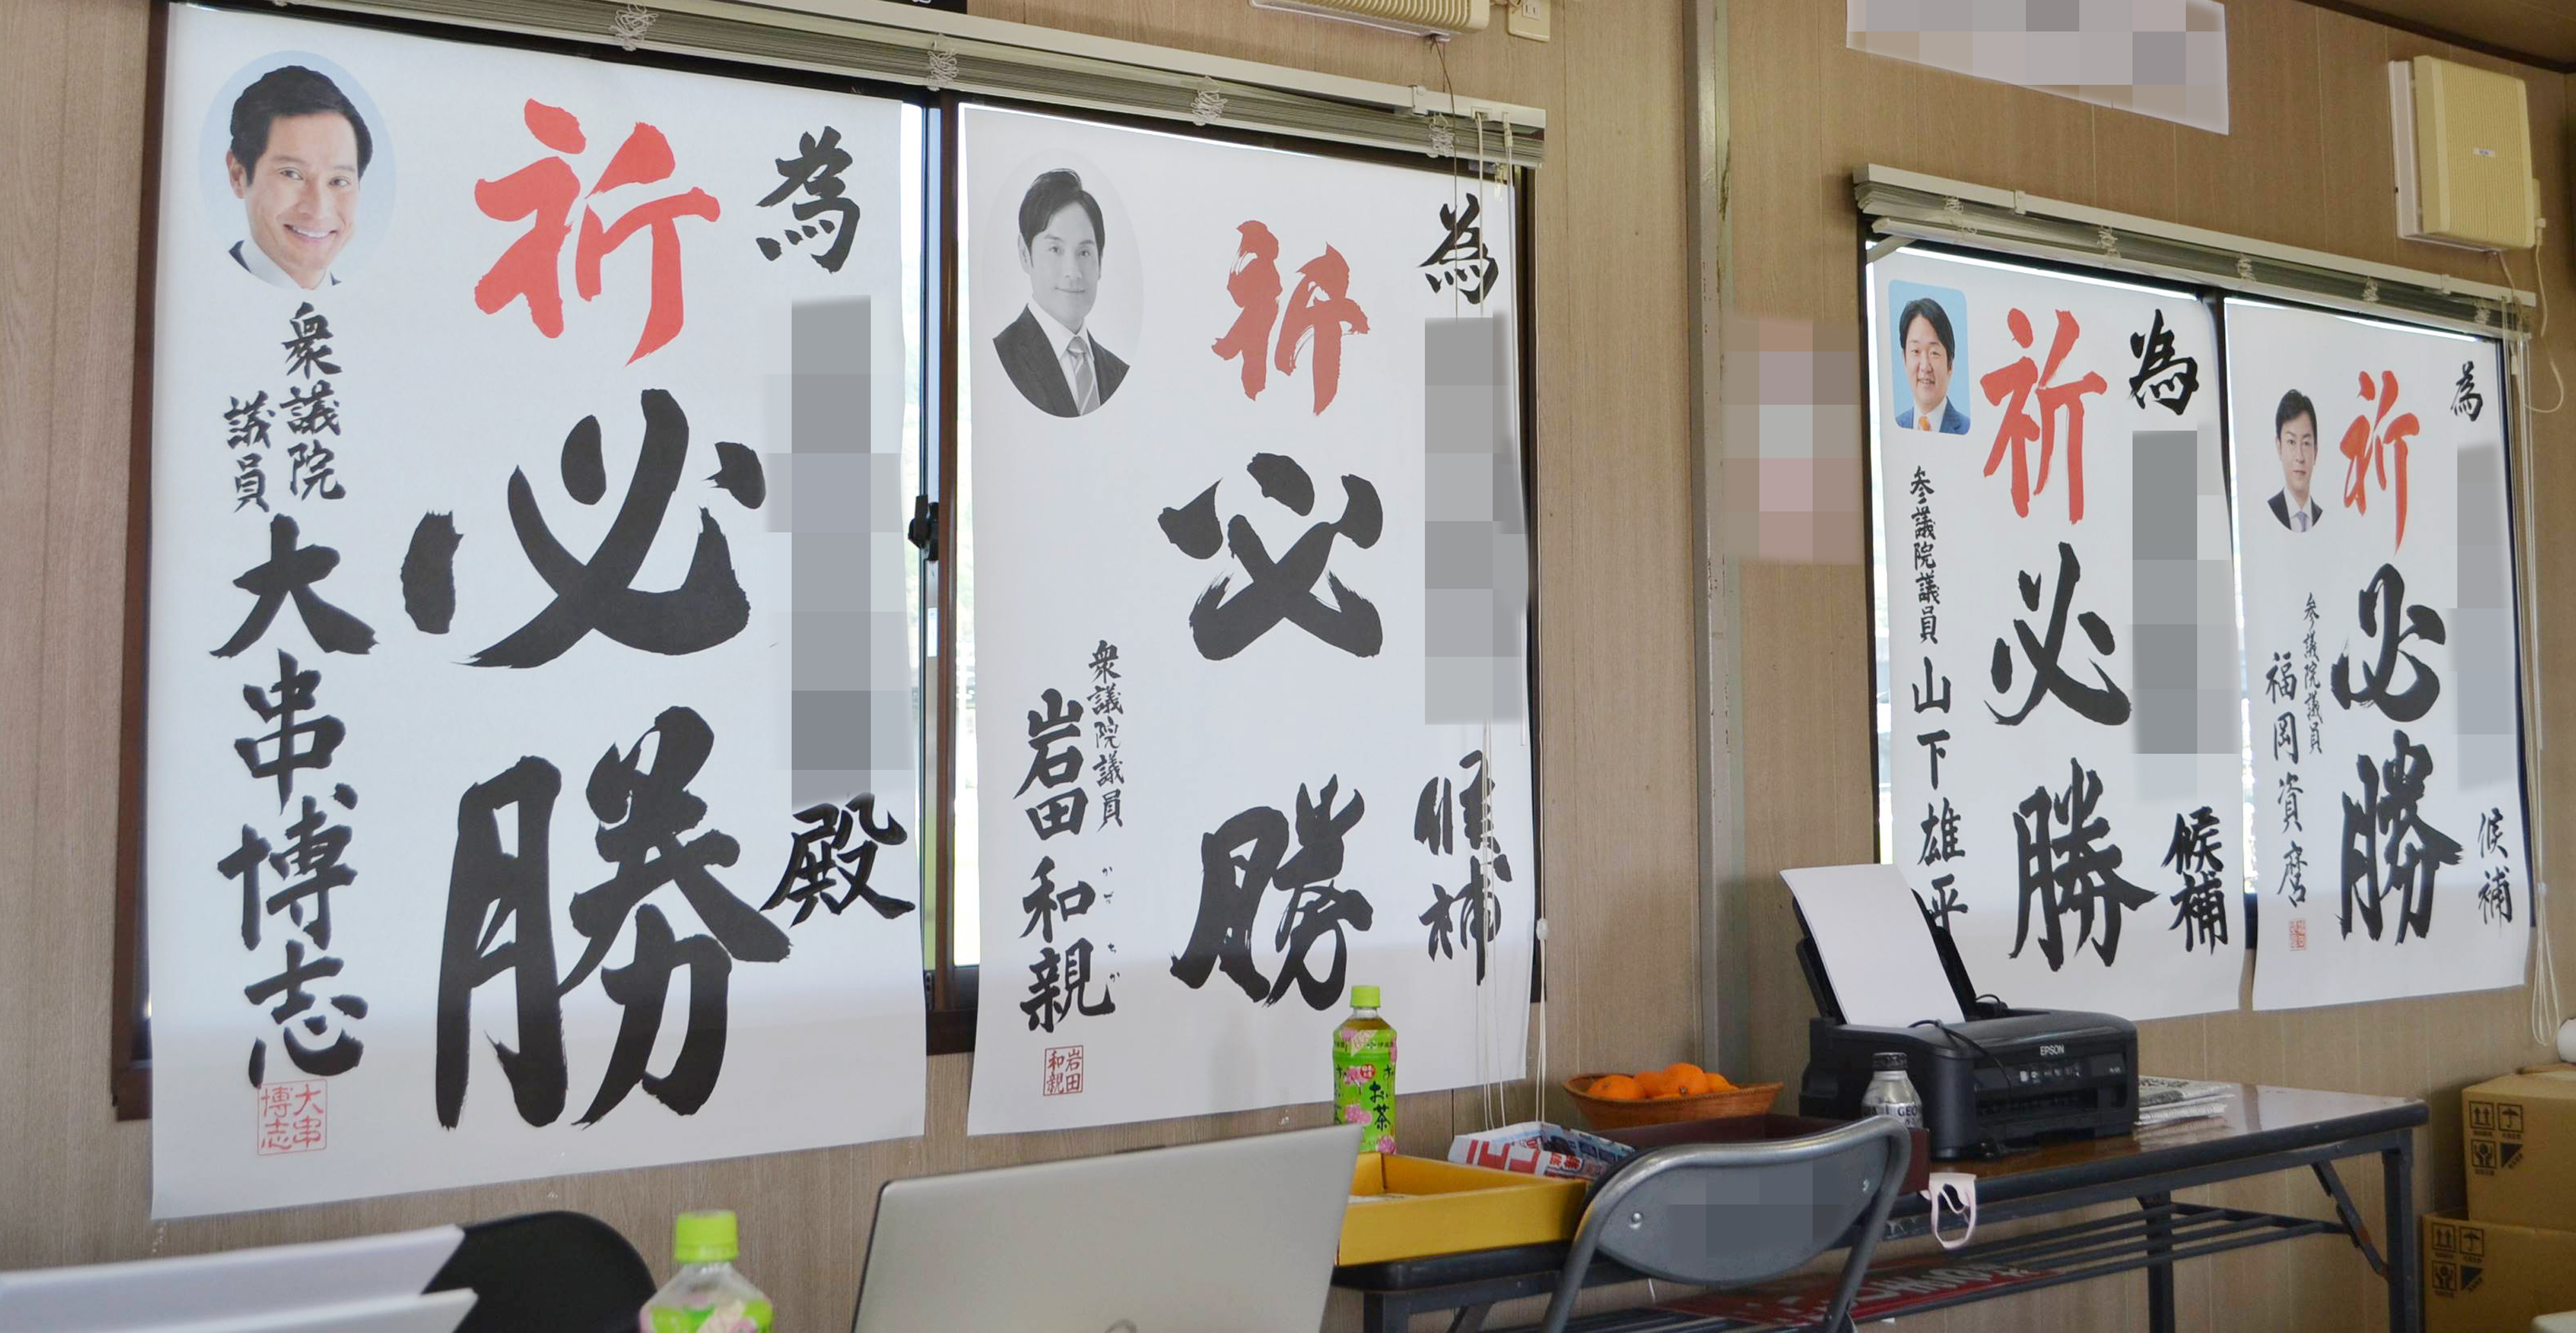 為
殿
祈
必
勝
衆議院
議員
大串博志
大串
博志
為
候補
祈
必
勝
衆議院議員
岩田和親
かず
ちか
岩田
和親
為
候補
祈
必
勝
参議院議員 山下雄平
為
候補
祈
必
勝
参議院議員
福岡資麿
お茶
EPSON
GEO